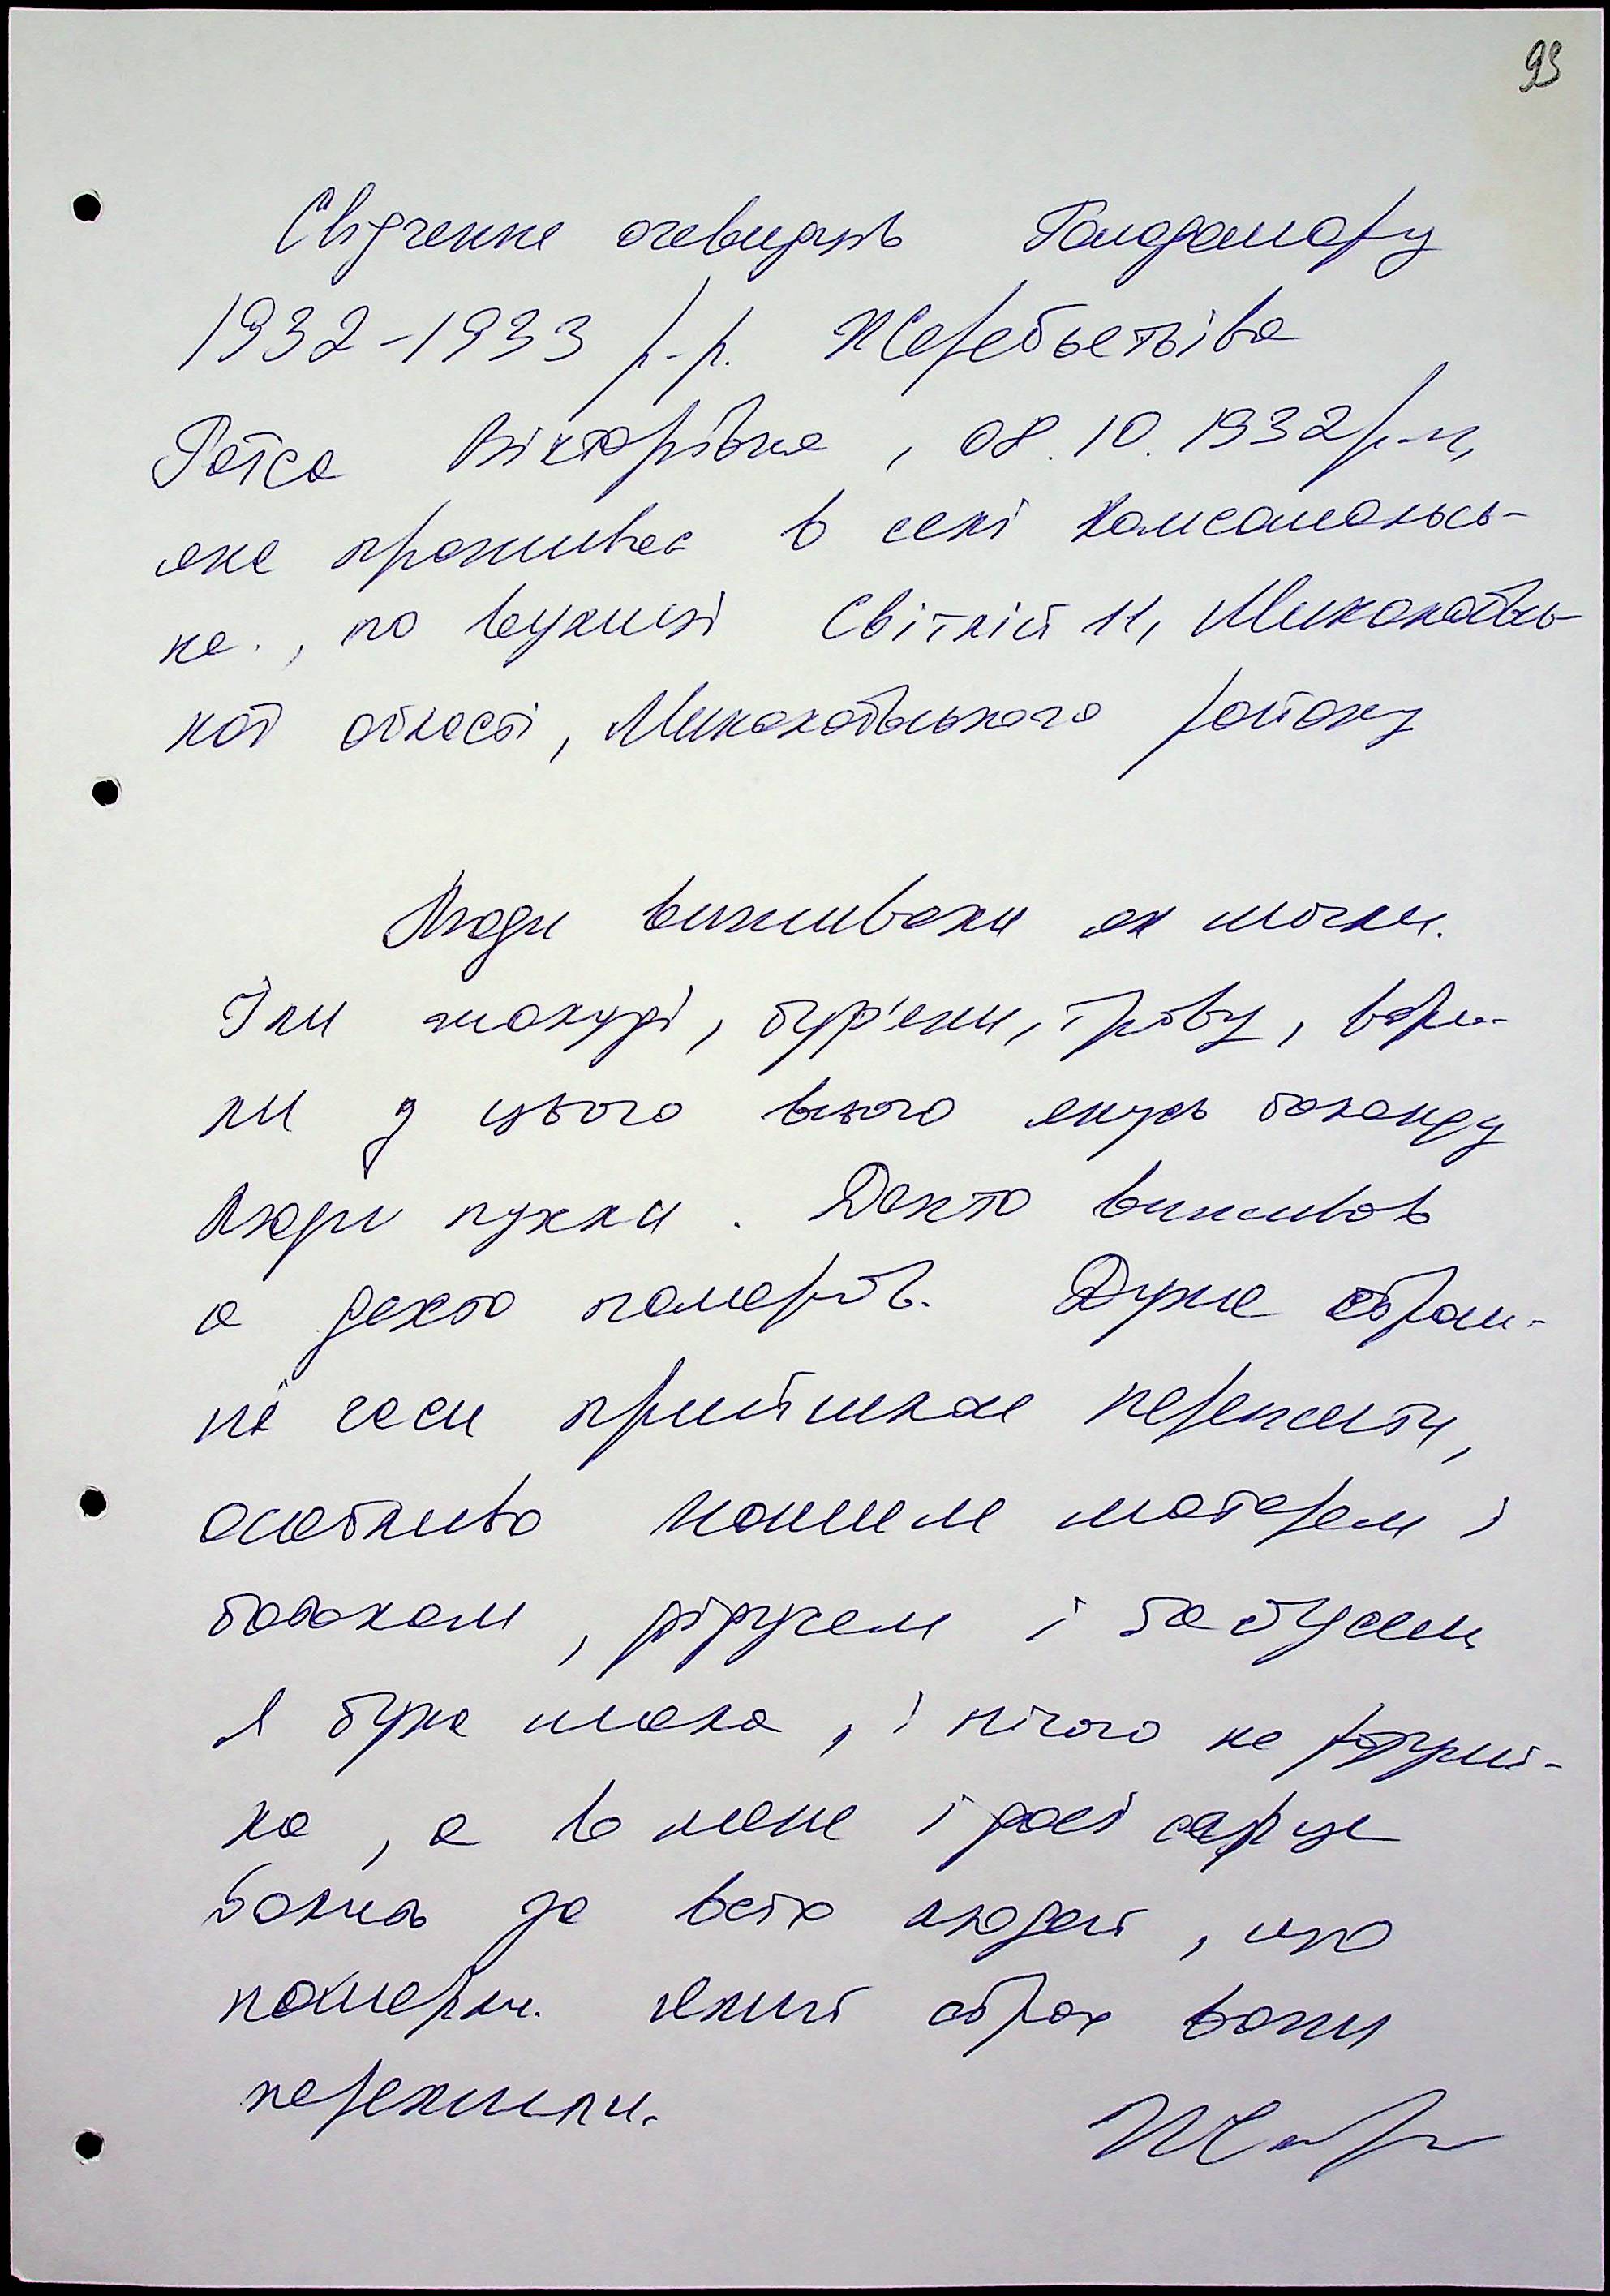 93
Свідчення очевидців Голодомору
1932-1933 р.-р. Жереб'єтьіва
Раїса Вікторівна, 08.10.1932 р-н,
яка проживає в селі Комсомольсь-
ке., по вулиці Світлій 11, Миколаївсь-
кої області, Миколаївського району
Люди виживали як могли.
Їли жолуді, бур'яни, траву, вари-
ли з цього всього якусь баланду
Люди пухли. Дехто виживав
а дехто помирав. Дуже страш-
ні часи прийшлося пережити,
особливо нашим матерям і
батькам, дідусям і бабусям
Я була мала, і нічого не розумі-
ла, а в мене і досі серце
болить за всіх людей, що
померли. Який страх вони
пережили.